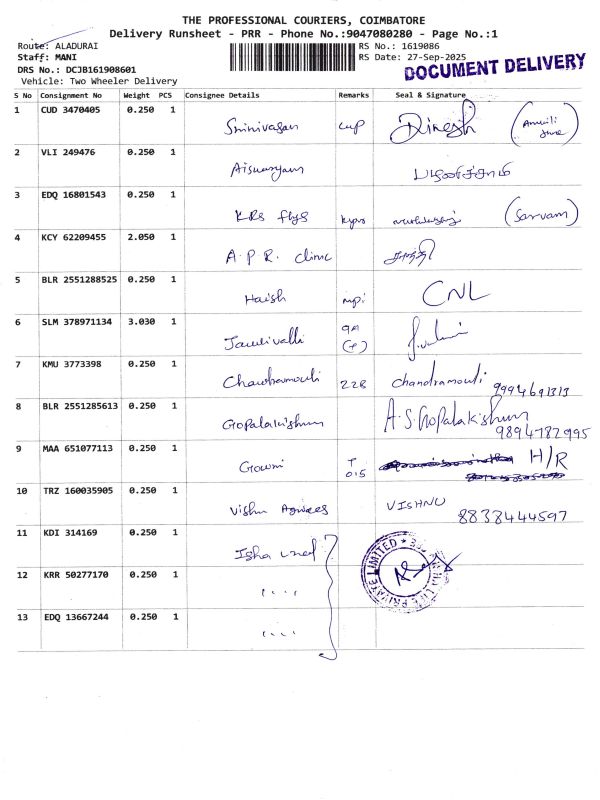 THE PROFESSIONAL COURIERS, COIMBATORE
Delivery Runsheet - PRR - Phone No.:9047080280 - Page No.:1
Route: ALADURAI
RS No.: 1619086
Staff: MANI
RS Date: 27-Sep-2025
DRS No.: DCJB161908601
Vehicle: Two Wheeler Delivery
DOCUMENT DELIVERY
S No Consignment No Weight PCS Consignee Details Remarks Seal & Signature
1 CUD 3470405 0.250 1 Srinivasan cup Dinesh
2 VLI 249476 0.250 1 பழனிச்சாமி
3 EDQ 16801543 0.250 1 KRS flys (Sarvam)
4 KCY 62209455 2.050 1 A.P.R. clinic சாந்தி
5 BLR 2551288525 0.250 1 Harish CNL
6 SLM 378971134 3.030 1 9A
7 KMU 3773398 0.250 1 Chandramouli 22B chandramouli 9994691313
8 BLR 2551285613 0.250 1 Gopalakishnn A.S.Gopalakishnn
9894782995
9 MAA 651077113 0.250 1 Gowri T 015 H/R
10 TRZ 160035905 0.250 1 Vishnu VISHNU
8838444597
11 KDI 314169 0.250 1 Isha
12 KRR 50277170 0.250 1 ''''
13 EDQ 13667244 0.250 1 ''''
PRIVATE LIMITED